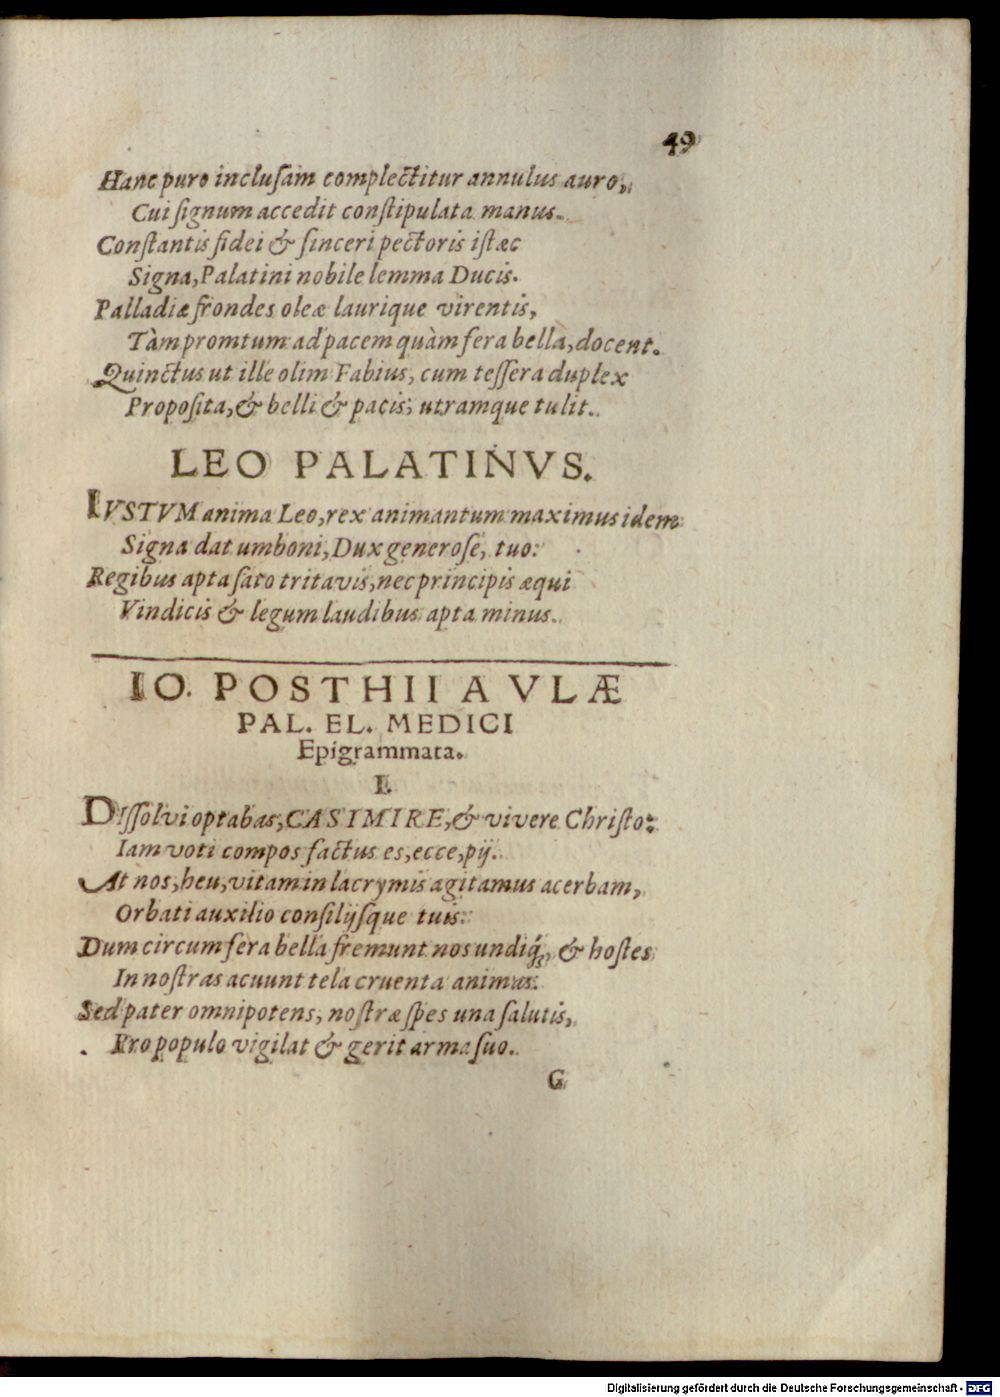 49
Hanc puro inclusam complectitur annulus auro,
Cui signum accedit constipulata manus.
Constantis fidei & sinceri pectoris istæc
Signa, Palatini nobile lemma Ducis.
Palladiæ frondes oleæ laurique virentis,
Tàm promtum ad pacem quàm fera bella, docent.
Quinctus ut ille olim Fabius, cum tessera duplex
Proposita, & belli & pacis, utramque tulit.
LEO PALATINVS.
IVSTVM anima Leo, rex animantum maximus idem
Signa dat umboni, Dux generose, tuo:
Regibus apta sato tritavis, nec principis æqui
Vindicis & legum laudibus apta minus.
IO. POSTHII AVLÆ
PAL. EL. MEDICI
Epigrammata.
I.
DIssolvi optabas, CASIMIRE, & vivere Christo:
Iam voti compos factus es, ecce, pij.
At nos, heu, vitam in lacrymis agitamus acerbam,
Orbati auxilio consilijsque tuis:
Dum circum fera bella fremunt nos undiq́;, & hostes
In nostras acuunt tela cruenta animas:
Sed pater omnipotens, nostræ spes una salutis,
Pro populo vigilat & gerit arma suo.
G
Digitalisierung gefördert durch die Deutsche Forschungsgemeinschaft - DFG